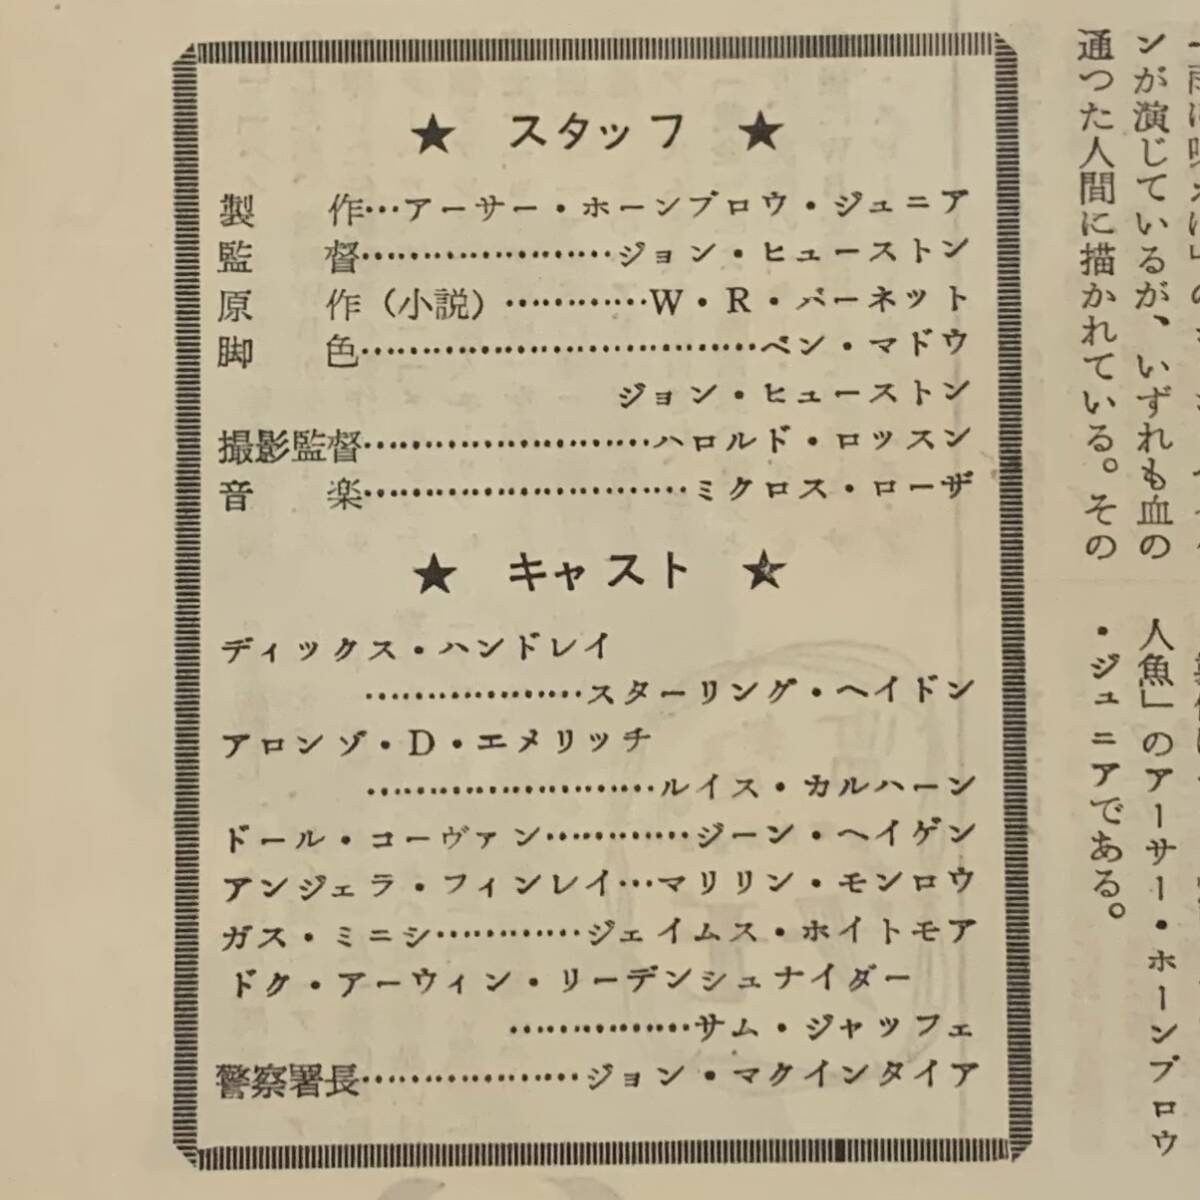 ★ スタッフ ★
製作…アーサー・ホーンブロウ・ジュニア
監督……………………ジョン・ヒューストン
原作（小説）…………W・R・バーネット
脚色………………………………ベン・マドウ
ジョン・ヒューストン
撮影監督………………………ハロルド・ロッスン
音楽…………………………ミクロス・ローザ
★ キャスト ★
ディックス・ハンドレイ
…………………スターリング・ヘイドン
アロンゾ・D・エメリッチ
………………………ルイス・カルハーン
ドール・コーヴァン…………ジーン・ヘイゲン
アンジェラ・フィンレイ…マリリン・モンロウ
ガス・ミニシ…………ジェイムス・ホイトモア
ドク・アーウィン・リーデンシュナイダー
……………サム・ジャッフェ
警察署長…………………ジョン・マクインタイア
ンが演じているが、いずれも血の
通つた人間に描かれている。その
人魚」のアーサー・ホーンブロウ
・ジュニアである。